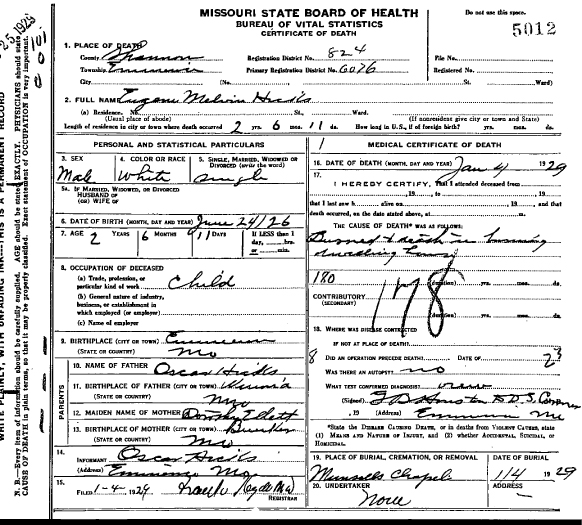 MISSOURI STATE BOARD OF HEALTH
BUREAU OF VITAL STATISTICS
CERTIFICATE OF DEATH
Do not use this space.
5012
1. PLACE OF DEATH
County Shannon
Registration District No. 824
File No.
Township Eminence
Primary Registration District No. 6076
Registered No.
City (No. St., Ward)
2. FULL NAME Eugene Melvin Hicks
(a) Residence. No. St., Ward.
(Usual place of abode) (If nonresident give city or town and State)
Length of residence in city or town where death occurred 2 yrs. 6 mos. 11 ds. How long in U.S., if of foreign birth? yrs. mos. ds.
PERSONAL AND STATISTICAL PARTICULARS
3. SEX Male
4. COLOR OR RACE White
5. SINGLE, MARRIED, WIDOWED OR DIVORCED (write the word) single
5a. IF MARRIED, WIDOWED, OR DIVORCED
HUSBAND OF
(OR) WIFE OF
6. DATE OF BIRTH (MONTH, DAY AND YEAR) June 24/26
7. AGE 2 YEARS 6 MONTHS 11 DAYS If LESS than 1 day, hrs. or min.
8. OCCUPATION OF DECEASED
(a) Trade, profession, or particular kind of work Child
(b) General nature of industry, business, or establishment in which employed (or employer)
(c) Name of employer
9. BIRTHPLACE (CITY OR TOWN) Eminence
(STATE OR COUNTRY) Mo
PARENTS
10. NAME OF FATHER Oscar Hicks
11. BIRTHPLACE OF FATHER (CITY OR TOWN) Winona
(STATE OR COUNTRY) Mo
12. MAIDEN NAME OF MOTHER Dorothy Elliott
13. BIRTHPLACE OF MOTHER (CITY OR TOWN)
(STATE OR COUNTRY) Mo
14. INFORMANT Oscar Hicks
(Address) Eminence Mo
15. FILED 1-4, 1929
REGISTRAR
MEDICAL CERTIFICATE OF DEATH
16. DATE OF DEATH (MONTH, DAY AND YEAR) Jan 4 1929
17. I HEREBY CERTIFY, That I attended deceased from
, 19 , to , 19
that I last saw h alive on , 19 , and that
death occurred, on the date stated above, at m.
THE CAUSE OF DEATH* WAS AS FOLLOWS:
Burned to death in burning
dwelling house
180
178
(duration) yrs. mos. ds.
CONTRIBUTORY
(SECONDARY)
(duration) yrs. mos. ds.
18. WHERE WAS DISEASE CONTRACTED
IF NOT AT PLACE OF DEATH?
8 DID AN OPERATION PRECEDE DEATH? DATE OF 23
WAS THERE AN AUTOPSY? no
WHAT TEST CONFIRMED DIAGNOSIS? view
(Signed) D.S. Coroner
, 19 (Address) Eminence Mo
*State the DISEASE CAUSING DEATH, or in deaths from VIOLENT CAUSES, state
(1) MEANS AND NATURE OF INJURY, and (2) whether ACCIDENTAL, SUICIDAL, or
HOMICIDAL.
19. PLACE OF BURIAL, CREMATION, OR REMOVAL Munsells Chapel
DATE OF BURIAL 1/4 1929
20. UNDERTAKER None
ADDRESS